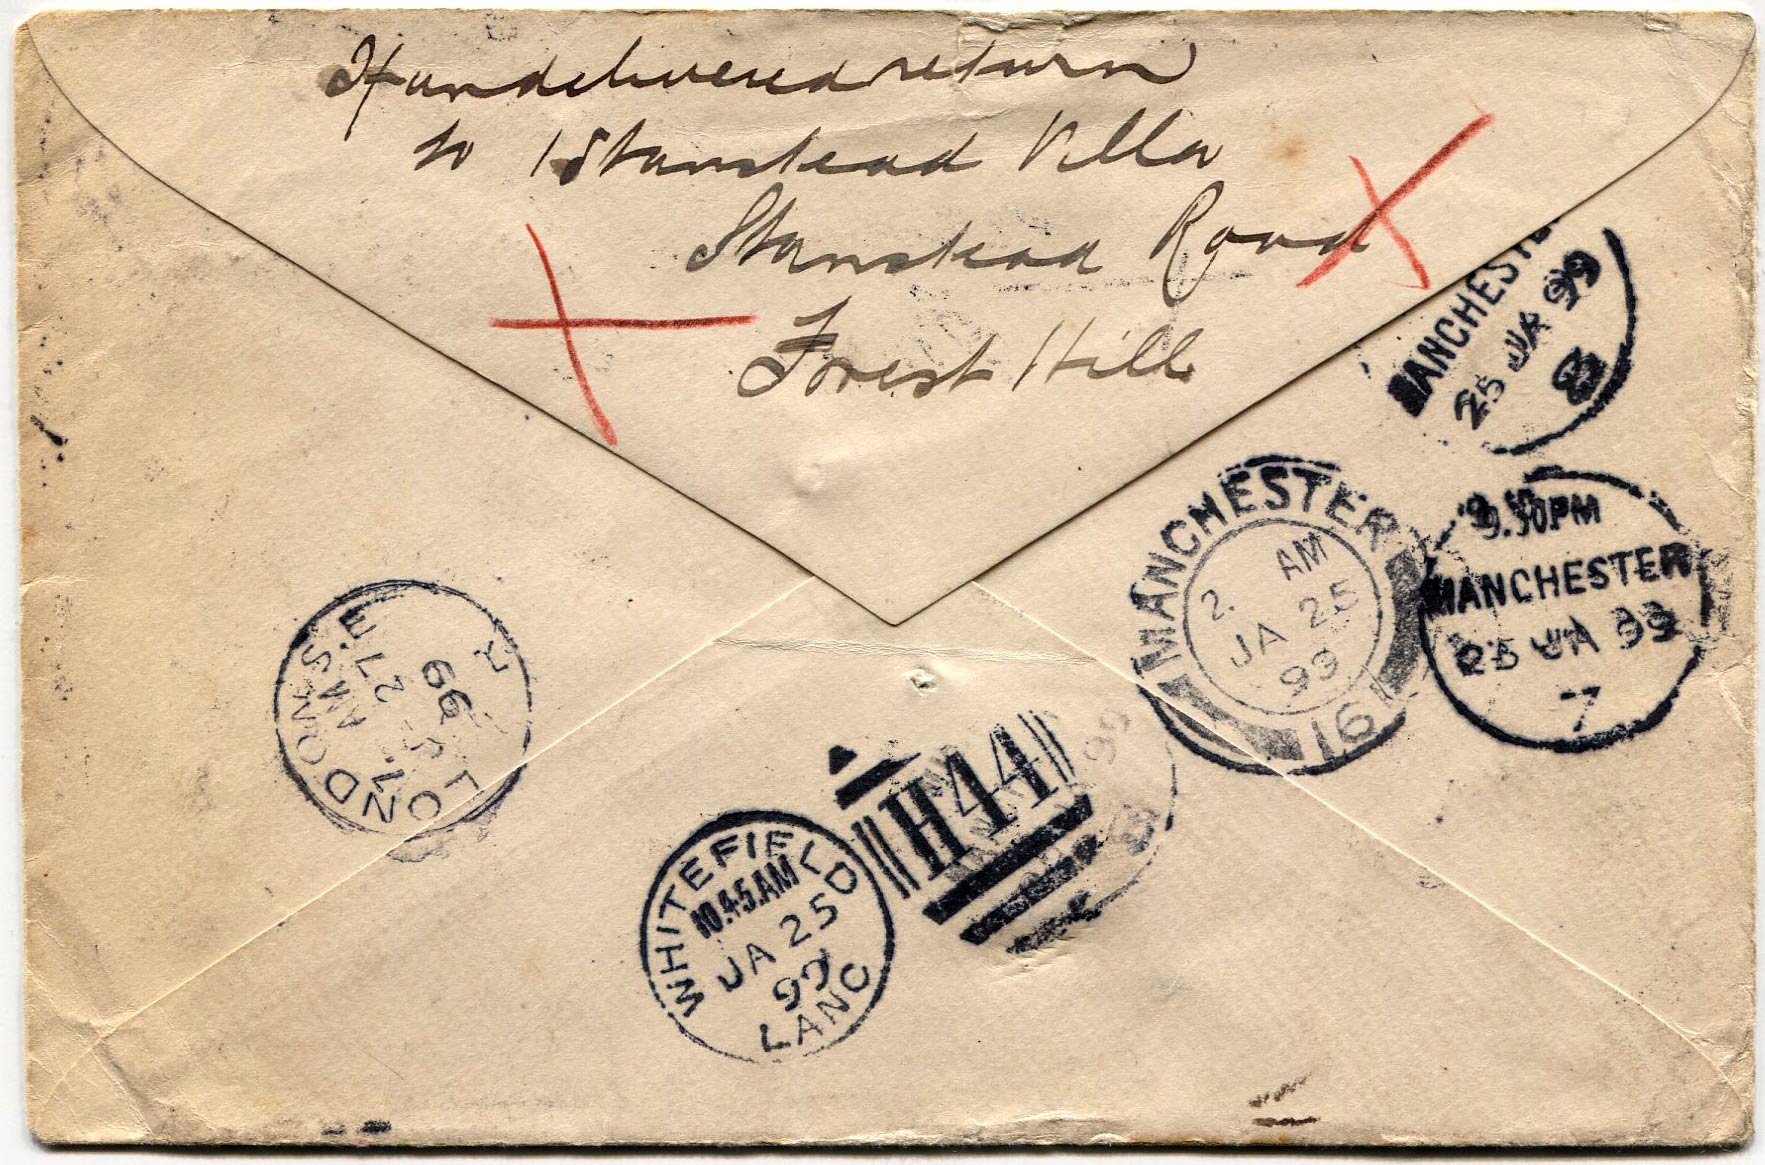 If undelivered return
to 1 Stanstead Villa
Stanstead Road
Forest Hill
MANCHESTE
25 JA 99
8
MANCHESTER
2. AM
JA 25
99
16
9.30PM
MANCHESTER
25 JA 99
7
LONDON S.E
R
AM
27
99
H44
99
WHITEFIELD
10.45.AM
JA 25
99
LANC